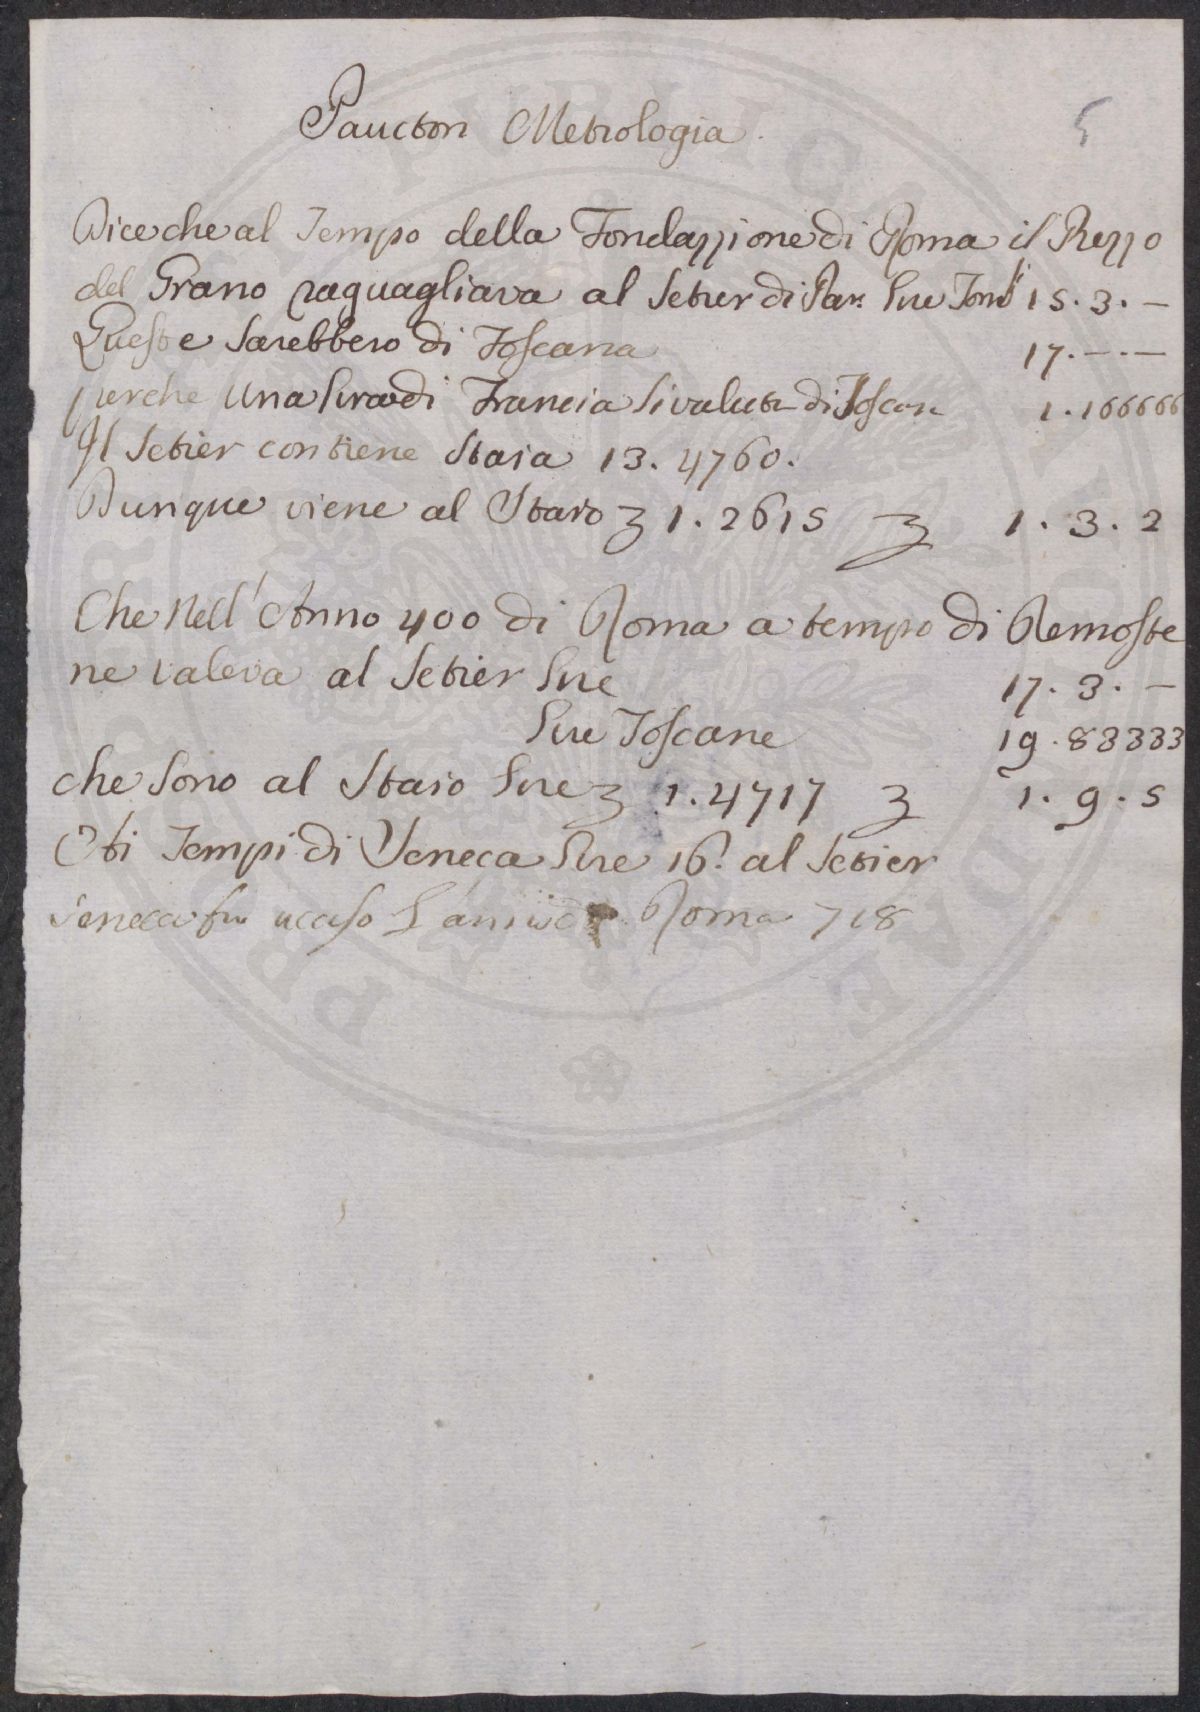 Paucton Metrologia.
5
Dice che al Tempo della Fondazzione di Roma il Prezzo
del Grano raguagliava al Setier di Par: Lire Torn.i 15.3.—
Queste sarebbero di Toscana 17.—.—
perche Una Lira di Francia si valuta di Toscan 1.166666
Il Setier contiene Staia 13.4760.
Dunque viene al Staio 1.2615 1.3.2
Che Nell'Anno 400 di Roma a tempo di Demoste
ne valeva al Setier Lire 17.3.—
Lire Toscane 19.83333
che sono al Staio Lire 1.4717 1.9.5
Ati Tempi di Seneca Lire 16. al Setier
Seneca fu ucciso L'anno Roma 718